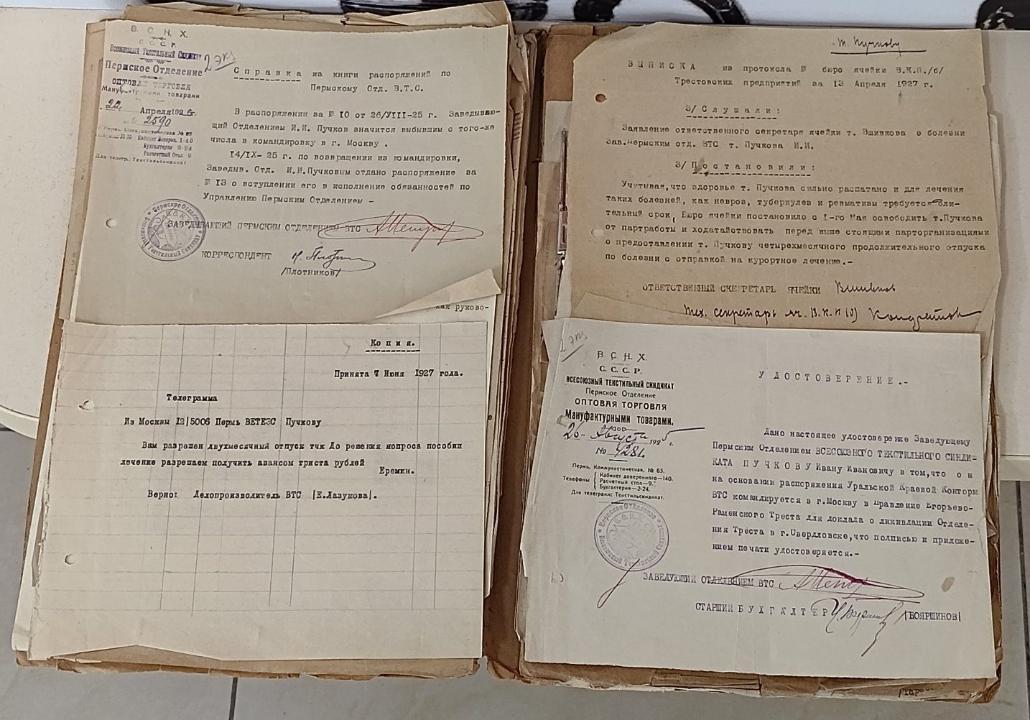 В. С. Н. Х.
С. С. С. Р.
Всесоюзный Текстильный Синдикат
Пермское Отделение
ОПТОВАЯ ТОРГОВЛЯ
Мануфактурными товарами
22 Апреля 192
№ 2590
2 экз
Справка из книги распоряжений по
Пермскому Отд. В.Т.С.
В распоряжении за № 10 от 26/VIII-25 г. Заведываю-
щий Отделением И.И. Пучков значится выбывшим с того-же
числа в командировку в г. Москву.
14/IX- 25 г. по возвращении из командировки,
Заведыв. Отд. И.И.Пучковым отдано распоряжение за
№ 13 о вступлении его в исполнение обязанностей по
Управлению Пермским Отделением -
ЗАВЕДЫВАЮЩИЙ ПЕРМСКИМ ОТДЕЛЕНИЕМ ВТС
КОРРЕСПОНДЕНТ
/Плотников/
как руково-
Копия.
Принята 7 Июня 1927 года.
Телеграмма
Из Москвы 12|5006 Пермь ВЕТЕЭС Пучкову
Вам разрешен двухмесячный отпуск тчк До решения вопроса пособии
лечение разрешаем получить авансом триста рублей
Еремин.
Верно: Делопроизводитель ВТС |Е.Лазукова|.
т. Пучкову
ВЫПИСКА из протокола № бюро ячейки В.К.П./б/
Трестовских предприятий за 13 Апреля 1927 г.
3/ Слушали:
Заявление ответственного секретаря ячейки т. Вшивкова о болезни
Зав.Пермским отд. ВТС т. Пучкова И.И.
3/ Постановили:
Учитывая,что здоровье т. Пучкова сильно расшатано и для лечения
таких болезней, как невроз, туберкулез и ревматизм требуется дли-
тельный срок, Бюро ячейки постановило с 1-го Мая освободить т.Пучкова
от партработы и ходатайствовать перед выше стоящими парторганизациями
о предоставлении т. Пучкову четырехмесячного продолжительного отпуска
по болезни с отправкой на курортное лечение.-
ОТВЕТСТВЕННЫЙ СЕКРЕТАРЬ ЯЧЕЙКИ Вшивков
Тех. секретарь яч. В.К.П(б)
2 экз
В. С. Н. Х.
С. С. С. Р.
ВСЕСОЮЗНЫЙ ТЕКСТИЛЬНЫЙ СИНДИКАТ
Пермское Отделение
ОПТОВАЯ ТОРГОВЛЯ
Мануфактурными товарами.
26 Августа 1925 г.
№ 4284
Пермь, Коммунистическая, № 63.
Телефоны: Кабинет доверенного—140.
Расчетный стол—9.
Бухгалтерия—2-24.
Для телеграмм: Текстильсиндикат.
УДОСТОВЕРЕНИЕ.-
Дано настоящее удостоверение Заведующему
Пермским Отделением ВСЕСОЮЗНОГО ТЕКСТИЛЬНОГО СИНДИ-
КАТА ПУЧКОВУ Ивану Ивановичу в том,что он
на основании распоряжения Уральской Краевой Конторы
ВТС командируется в г.Москву в Правление Егорьево-
Раменского Треста для доклада о ликвидации Отделе-
ния Треста в г.Свердловске,что подписью и приложе-
нием печати удостоверяется.-
ЗАВЕДУЮЩИЙ ОТДЕЛЕНИЕМ ВТС
СТАРШИЙ БУХГАЛТЕР |БОЯРШИНОВ|